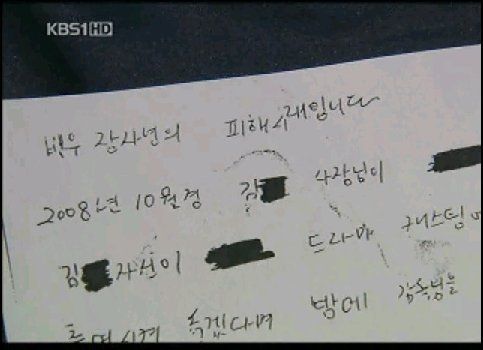 KBS1HD
배우 장자연의 피해사례입니다
2008년 10월경 김 사장님이
김 자신이 드라마 캐스팅
시켜 주겠다며 밤에 감독님을